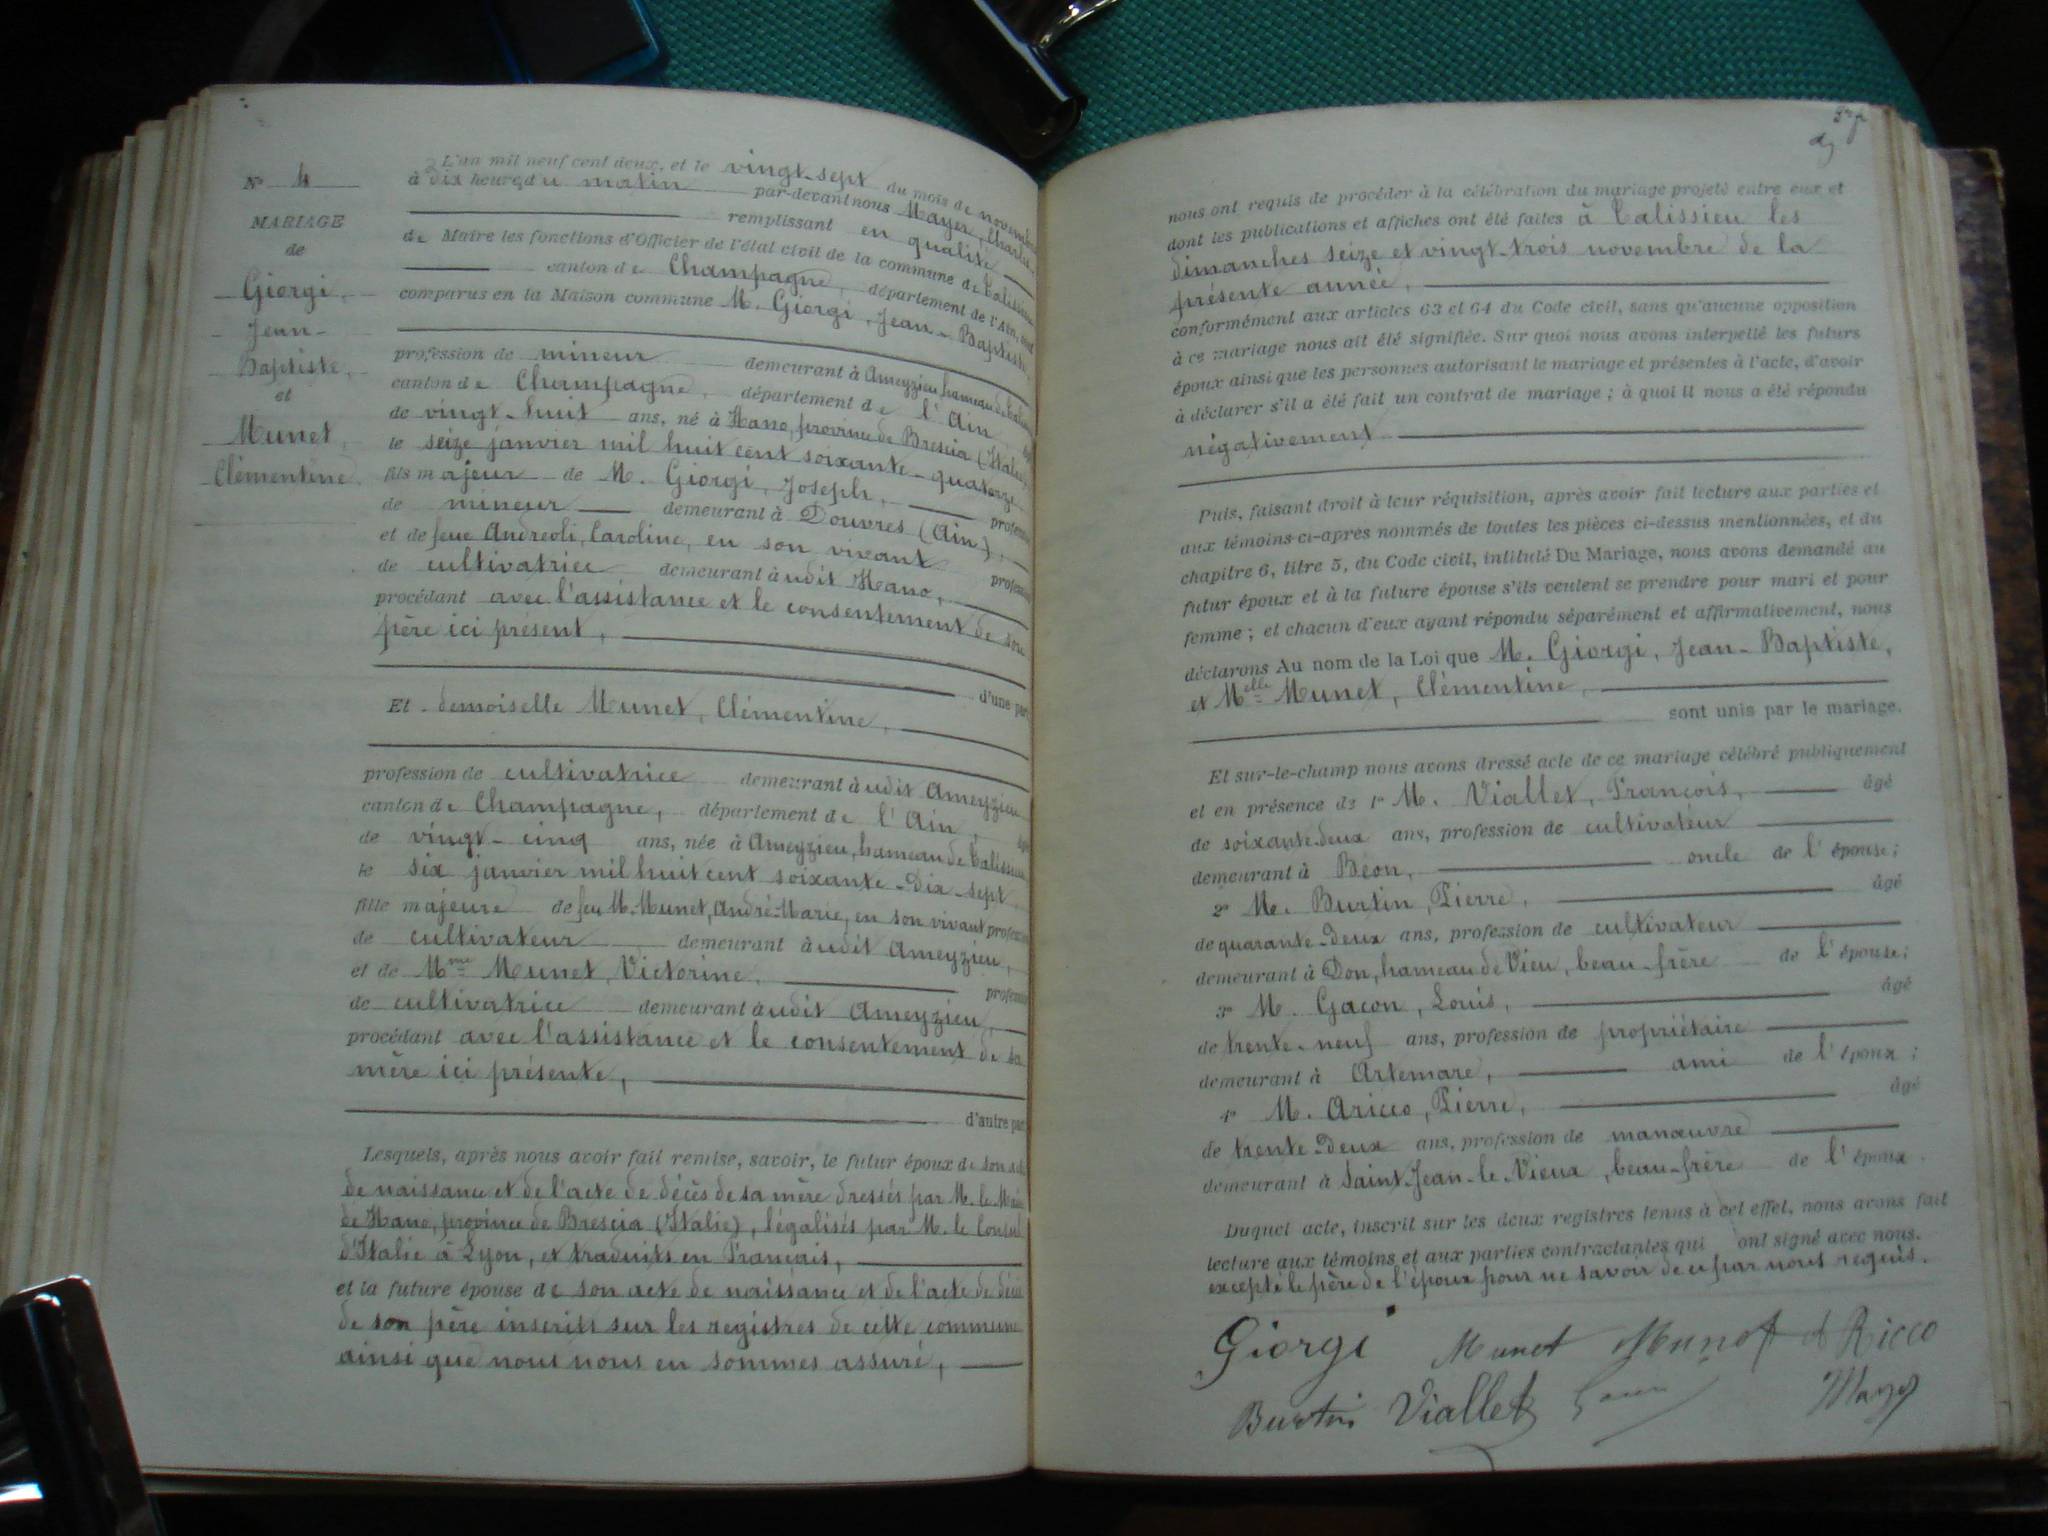 N° 4
MARIAGE
de
Giorgi,
Jean-
Baptiste,
et
Munet,
Clémentine
L'an mil neuf cent deux, et le vingt-sept du mois de novembre
à dix heures du matin par-devant nous Mayer, Charles
remplissant en qualité
de Maire les fonctions d'Officier de l'état civil de la commune de Talissieu
canton de Champagne, département de l'Ain, sont
comparus en la Maison commune M. Giorgi, Jean-Baptiste,
profession de mineur demeurant à Ameyzieu, hameau de Talissieu
canton de Champagne, département de l'Ain, âgé
de vingt-huit ans, né à Hano, province de Brescia (Italie)
le seize janvier mil huit cent soixante-quatorze,
fils majeur de M. Giorgi, Joseph, profession
de mineur demeurant à Douvres (Ain),
et de feue Andreoli, Caroline, en son vivant profession
de cultivatrice demeurant à udit Hano,
procédant avec l'assistance et le consentement de son
père ici présent,
d'une part
Et demoiselle Munet, Clémentine,
profession de cultivatrice demeurant à udit Ameyzieu
canton de Champagne, département de l'Ain, âgé
de vingt-cinq ans, née à Ameyzieu, hameau de Talissieu
le six janvier mil huit cent soixante-dix-sept
fille majeure de feu M. Munet, André-Marie, en son vivant profession
de cultivateur demeurant à udit Ameyzieu,
et de Mme Munet, Victorine, profession
de cultivatrice demeurant à udit Ameyzieu,
procédant avec l'assistance et le consentement de sa
mère ici présente,
d'autre part
Lesquels, après nous avoir fait remise, savoir, le futur époux de son acte
de naissance et de l'acte de décès de sa mère dressés par M. le Maire
de Hano, province de Brescia (Italie), légalisés par M. le Consul
d'Italie à Lyon, et traduits en Français,
et la future épouse de son acte de naissance et de l'acte de décès
de son père inscrits sur les registres de cette commune
ainsi que nous nous en sommes assuré,
nous ont requis de procéder à la célébration du mariage projeté entre eux et
dont les publications et affiches ont été faites à Talissieu les
dimanches seize et vingt-trois novembre de la
présente année,
conformément aux articles 63 et 64 du Code civil, sans qu'aucune opposition
à ce mariage nous ait été signifiée. Sur quoi nous avons interpellé les futurs
époux ainsi que les personnes autorisant le mariage et présentes à l'acte, d'avoir
à déclarer s'il a été fait un contrat de mariage ; à quoi il nous a été répondu
négativement
Puis, faisant droit à leur réquisition, après avoir fait lecture aux parties et
aux témoins ci-après nommés de toutes les pièces ci-dessus mentionnées, et du
chapitre 6, titre 5, du Code civil, intitulé Du Mariage, nous avons demandé au
futur époux et à la future épouse s'ils veulent se prendre pour mari et pour
femme ; et chacun d'eux ayant répondu séparément et affirmativement, nous
déclarons Au nom de la Loi que M. Giorgi, Jean-Baptiste,
et Melle Munet, Clémentine,
sont unis par le mariage.
Et sur-le-champ nous avons dressé acte de ce mariage célébré publiquement
et en présence de 1° M. Viallet, François, âgé
de soixante-deux ans, profession de cultivateur
demeurant à Béon, oncle de l'épouse ;
2° M. Burtin, Pierre, âgé
de quarante-deux ans, profession de cultivateur
demeurant à Don, hameau de Vieu, beau-frère de l'épouse ;
3° M. Gacon, Louis, âgé
de trente-neuf ans, profession de propriétaire
demeurant à Artemare, ami de l'époux ;
4° M. Aricco, Pierre, âgé
de trente-deux ans, profession de manœuvre
demeurant à Saint-Jean-le-Vieux, beau-frère de l'époux.
Duquel acte, inscrit sur les deux registres tenus à cet effet, nous avons fait
lecture aux témoins et aux parties contractantes qui ont signé avec nous.
excepté le père de l'époux pour ne savoir de ce par nous requis.
Giorgi Munet Munet A Ricco
Burtin Viallet Mayer